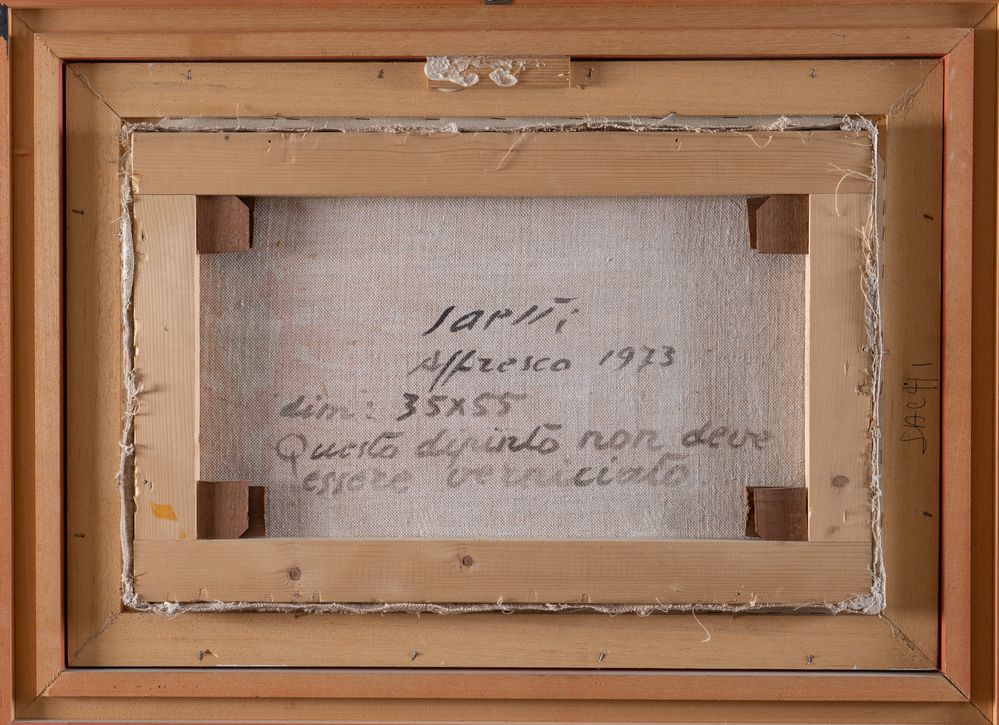 Affresco 1973
dim: 35x55
Questo dipinto non deve
essere verniciato.